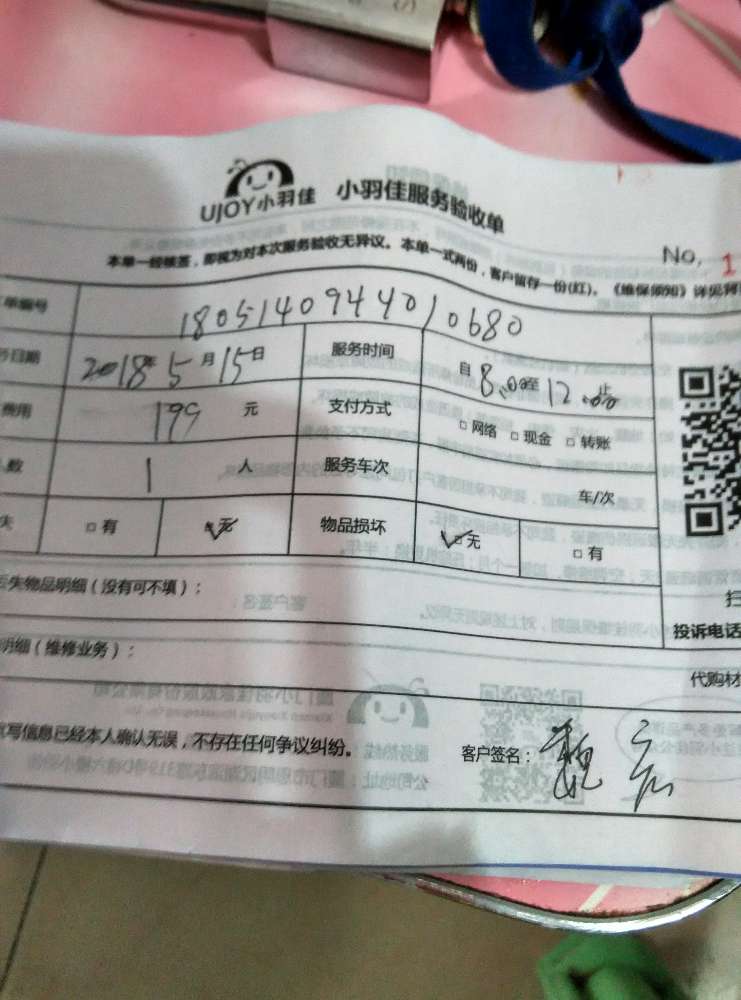 UJOY小羽佳 小羽佳服务验收单
No. 1
本单一经核签，即视为对本次服务验收无异议。本单一式两份，客户留存一份(红)。《维保须知》详见背
单编号 1805140944010680
日期 2018年5月15日 服务时间 自8:00至12:00止
费用 199 元 支付方式 □网络 □现金 □转账
人数 1 人 服务车次 车/次
失 □有 ☑无 物品损坏 ☑无 □有
失物品明细（没有可不填）：
扫
投诉电话
明细（维修业务）：
代购材
填写信息已经本人确认无误，不存在任何争议纠纷。 客户签名：